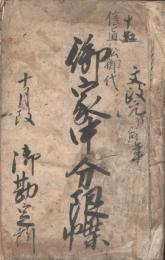 文政元寅年
十輯
信道公御代
御家中分限帳
十月改
御勘定所